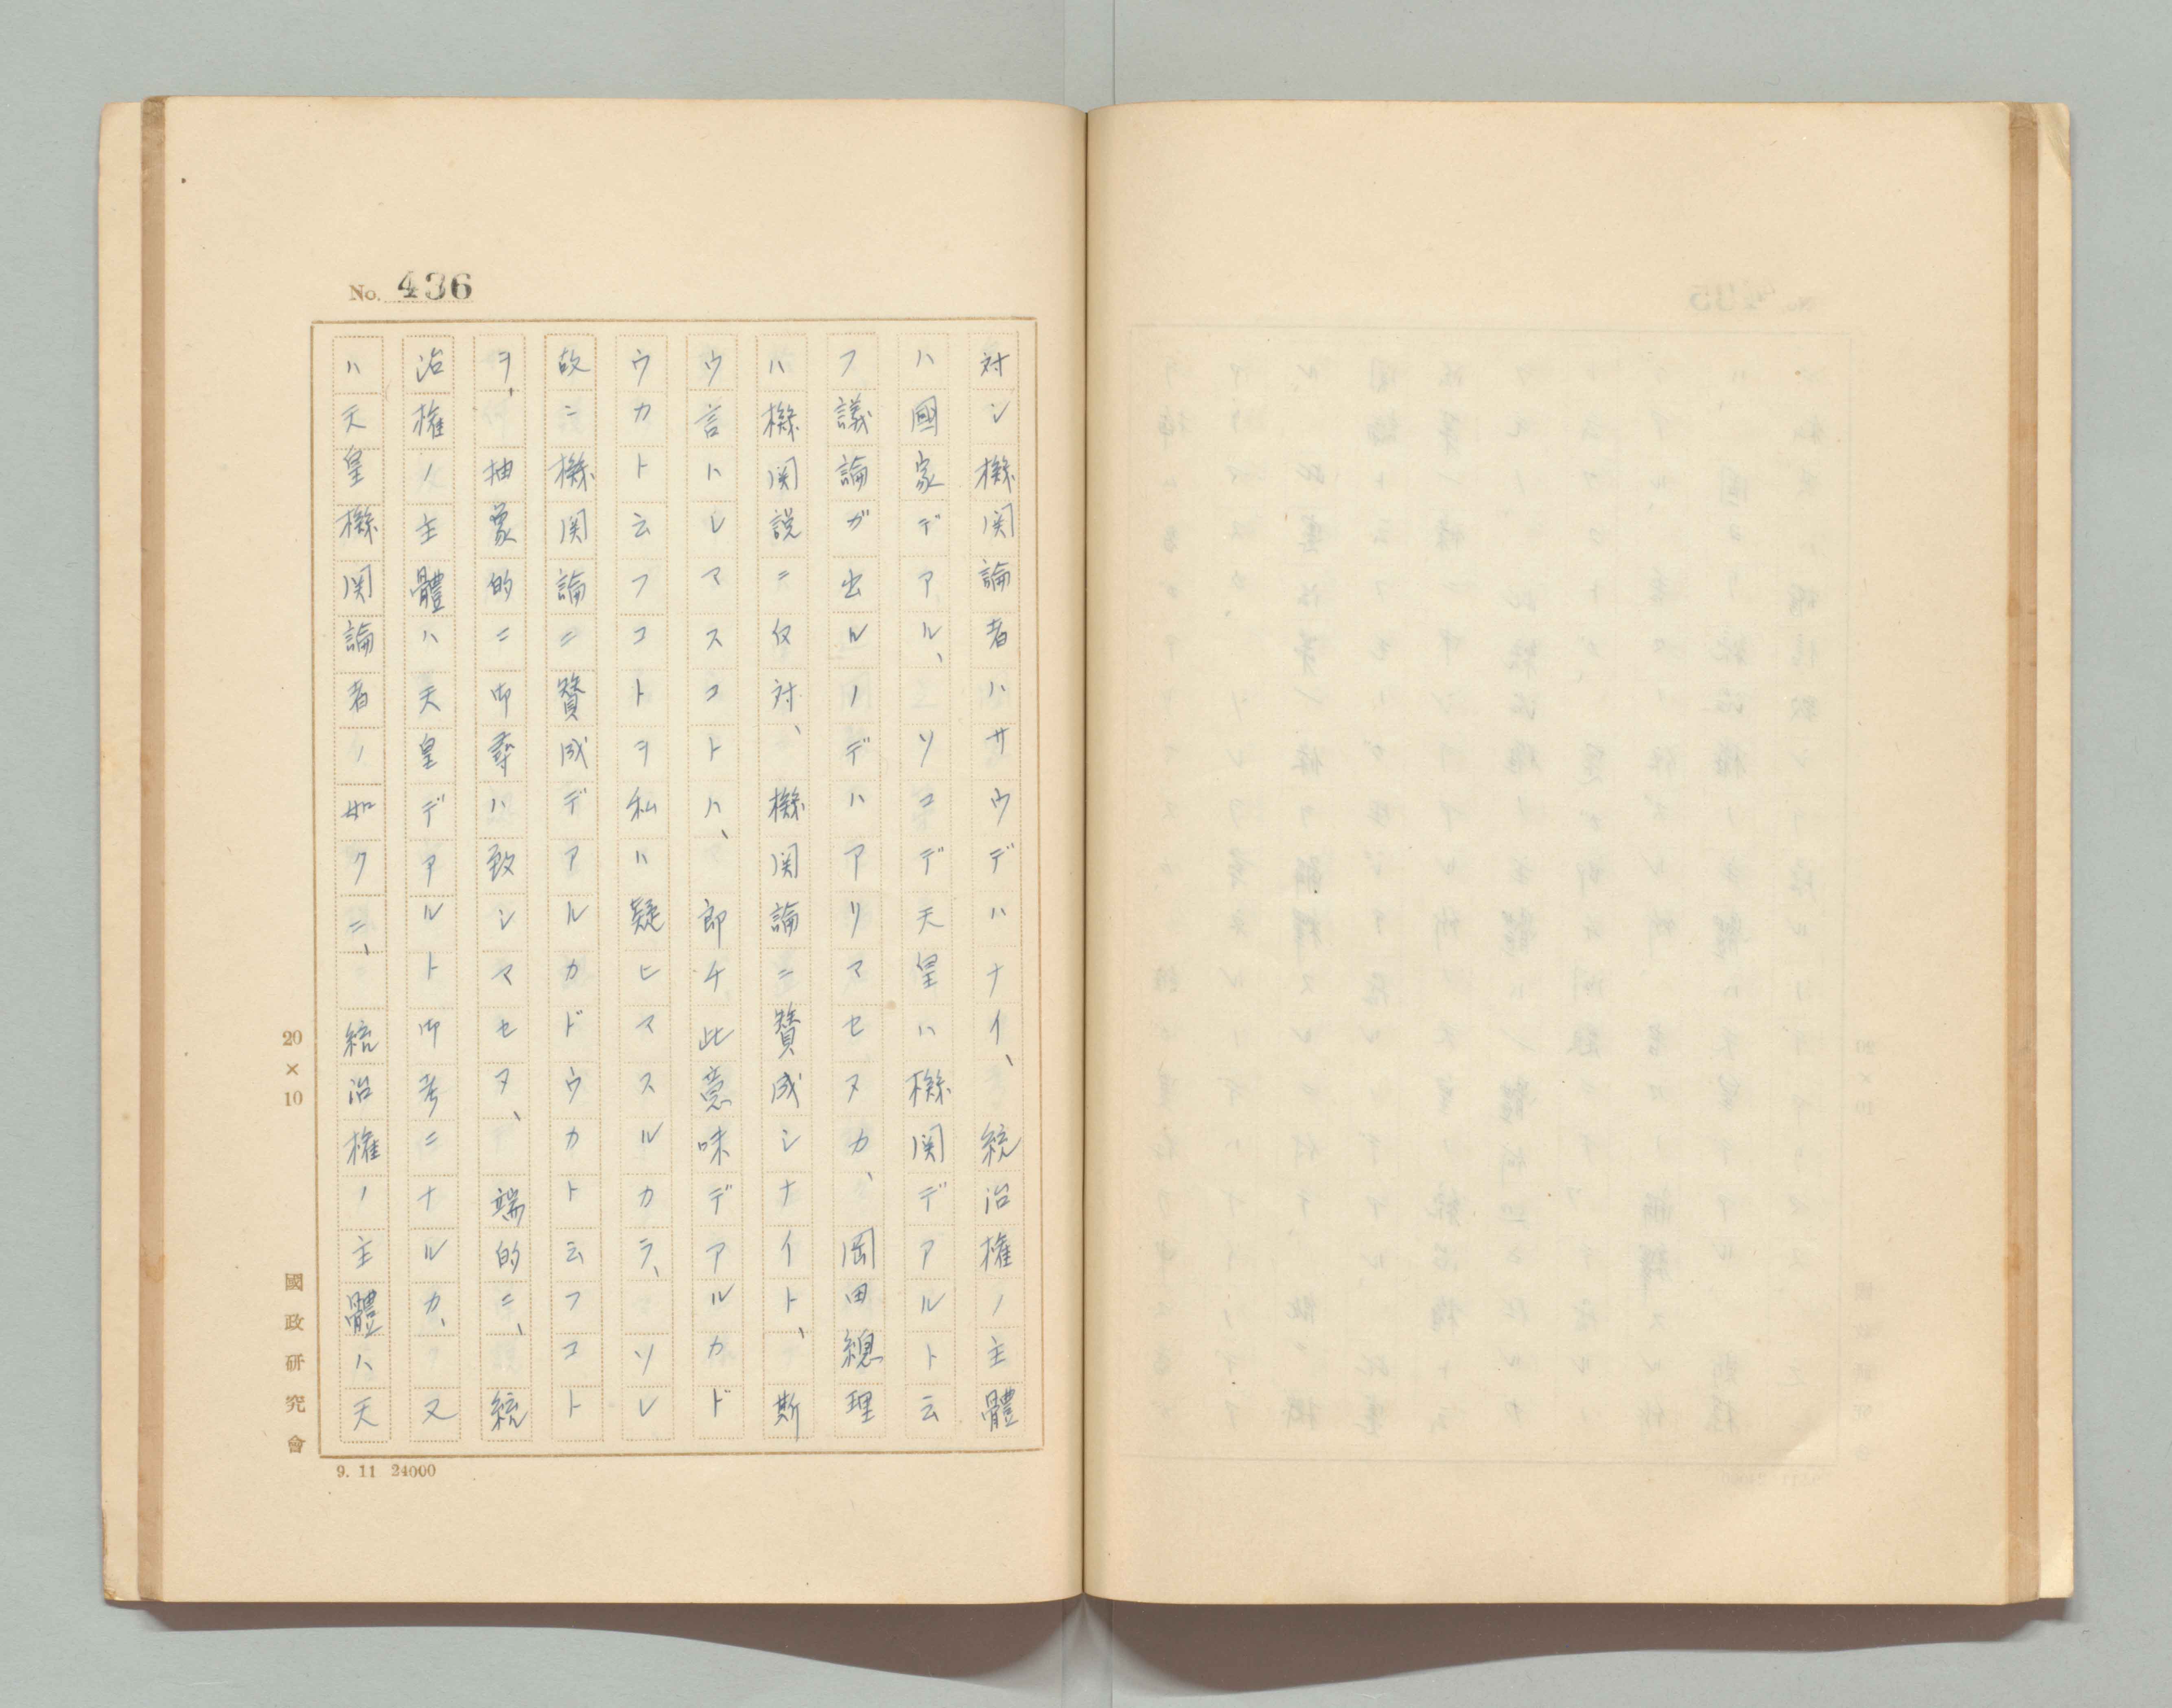 No. 436
対シ機関論者ハサウデハナイ、統治権ノ主體
ハ國家デアル、ソコデ天皇ハ機関デアルト云
フ議論ガ出ルノデハアリマセヌカ、岡田總理
ハ機関説ニ反対、機関論ニ賛成シナイト、斯
ウ言ハレマスコトハ、即チ此意味デアルカド
ウカト云フコトヲ私ハ疑ヒマスルカラ、ソレ
故ニ機関論ニ賛成デアルカドウカト云フコト
ヲ、抽象的ニ御尋ハ致シマセヌ、端的ニ、統
治権ノ主體ハ天皇デアルト御考ニナルカ、又
ハ天皇機関論者ノ如クニ、統治権ノ主體ハ天
20×10
國政研究會
9. 11 24000